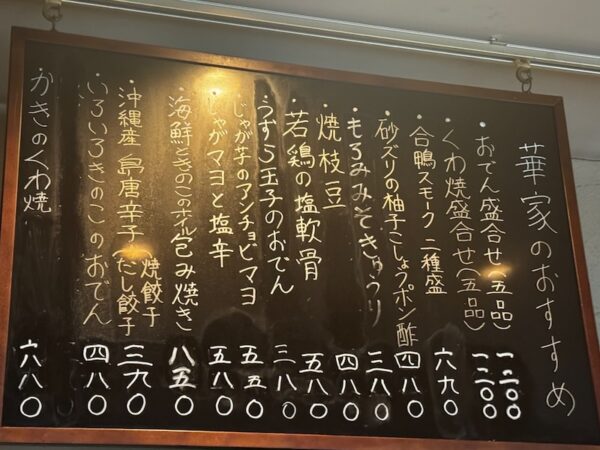 華家のおすすめ
・おでん盛合せ(五品) 一二〇〇
・くわ焼盛合せ(五品) 一二〇〇
・合鴨スモーク 二種盛 六九〇
・砂ズリの柚子こしょうポン酢 四八〇
・もろみみそきゅうり 三八〇
・焼枝豆 四八〇
・若鶏の塩軟骨 五八〇
・うずら玉子のおでん 三八〇
・じゃが芋のアンチョビマヨ 五五〇
・じゃがマヨと塩辛 五八〇
・海鮮ときのこのホイル包み焼き 八五〇
・沖縄産 島唐辛子(焼餃子 だし餃子 三九〇
・いろいろきのこのおでん 四八〇
・かきのくわ焼 六八〇